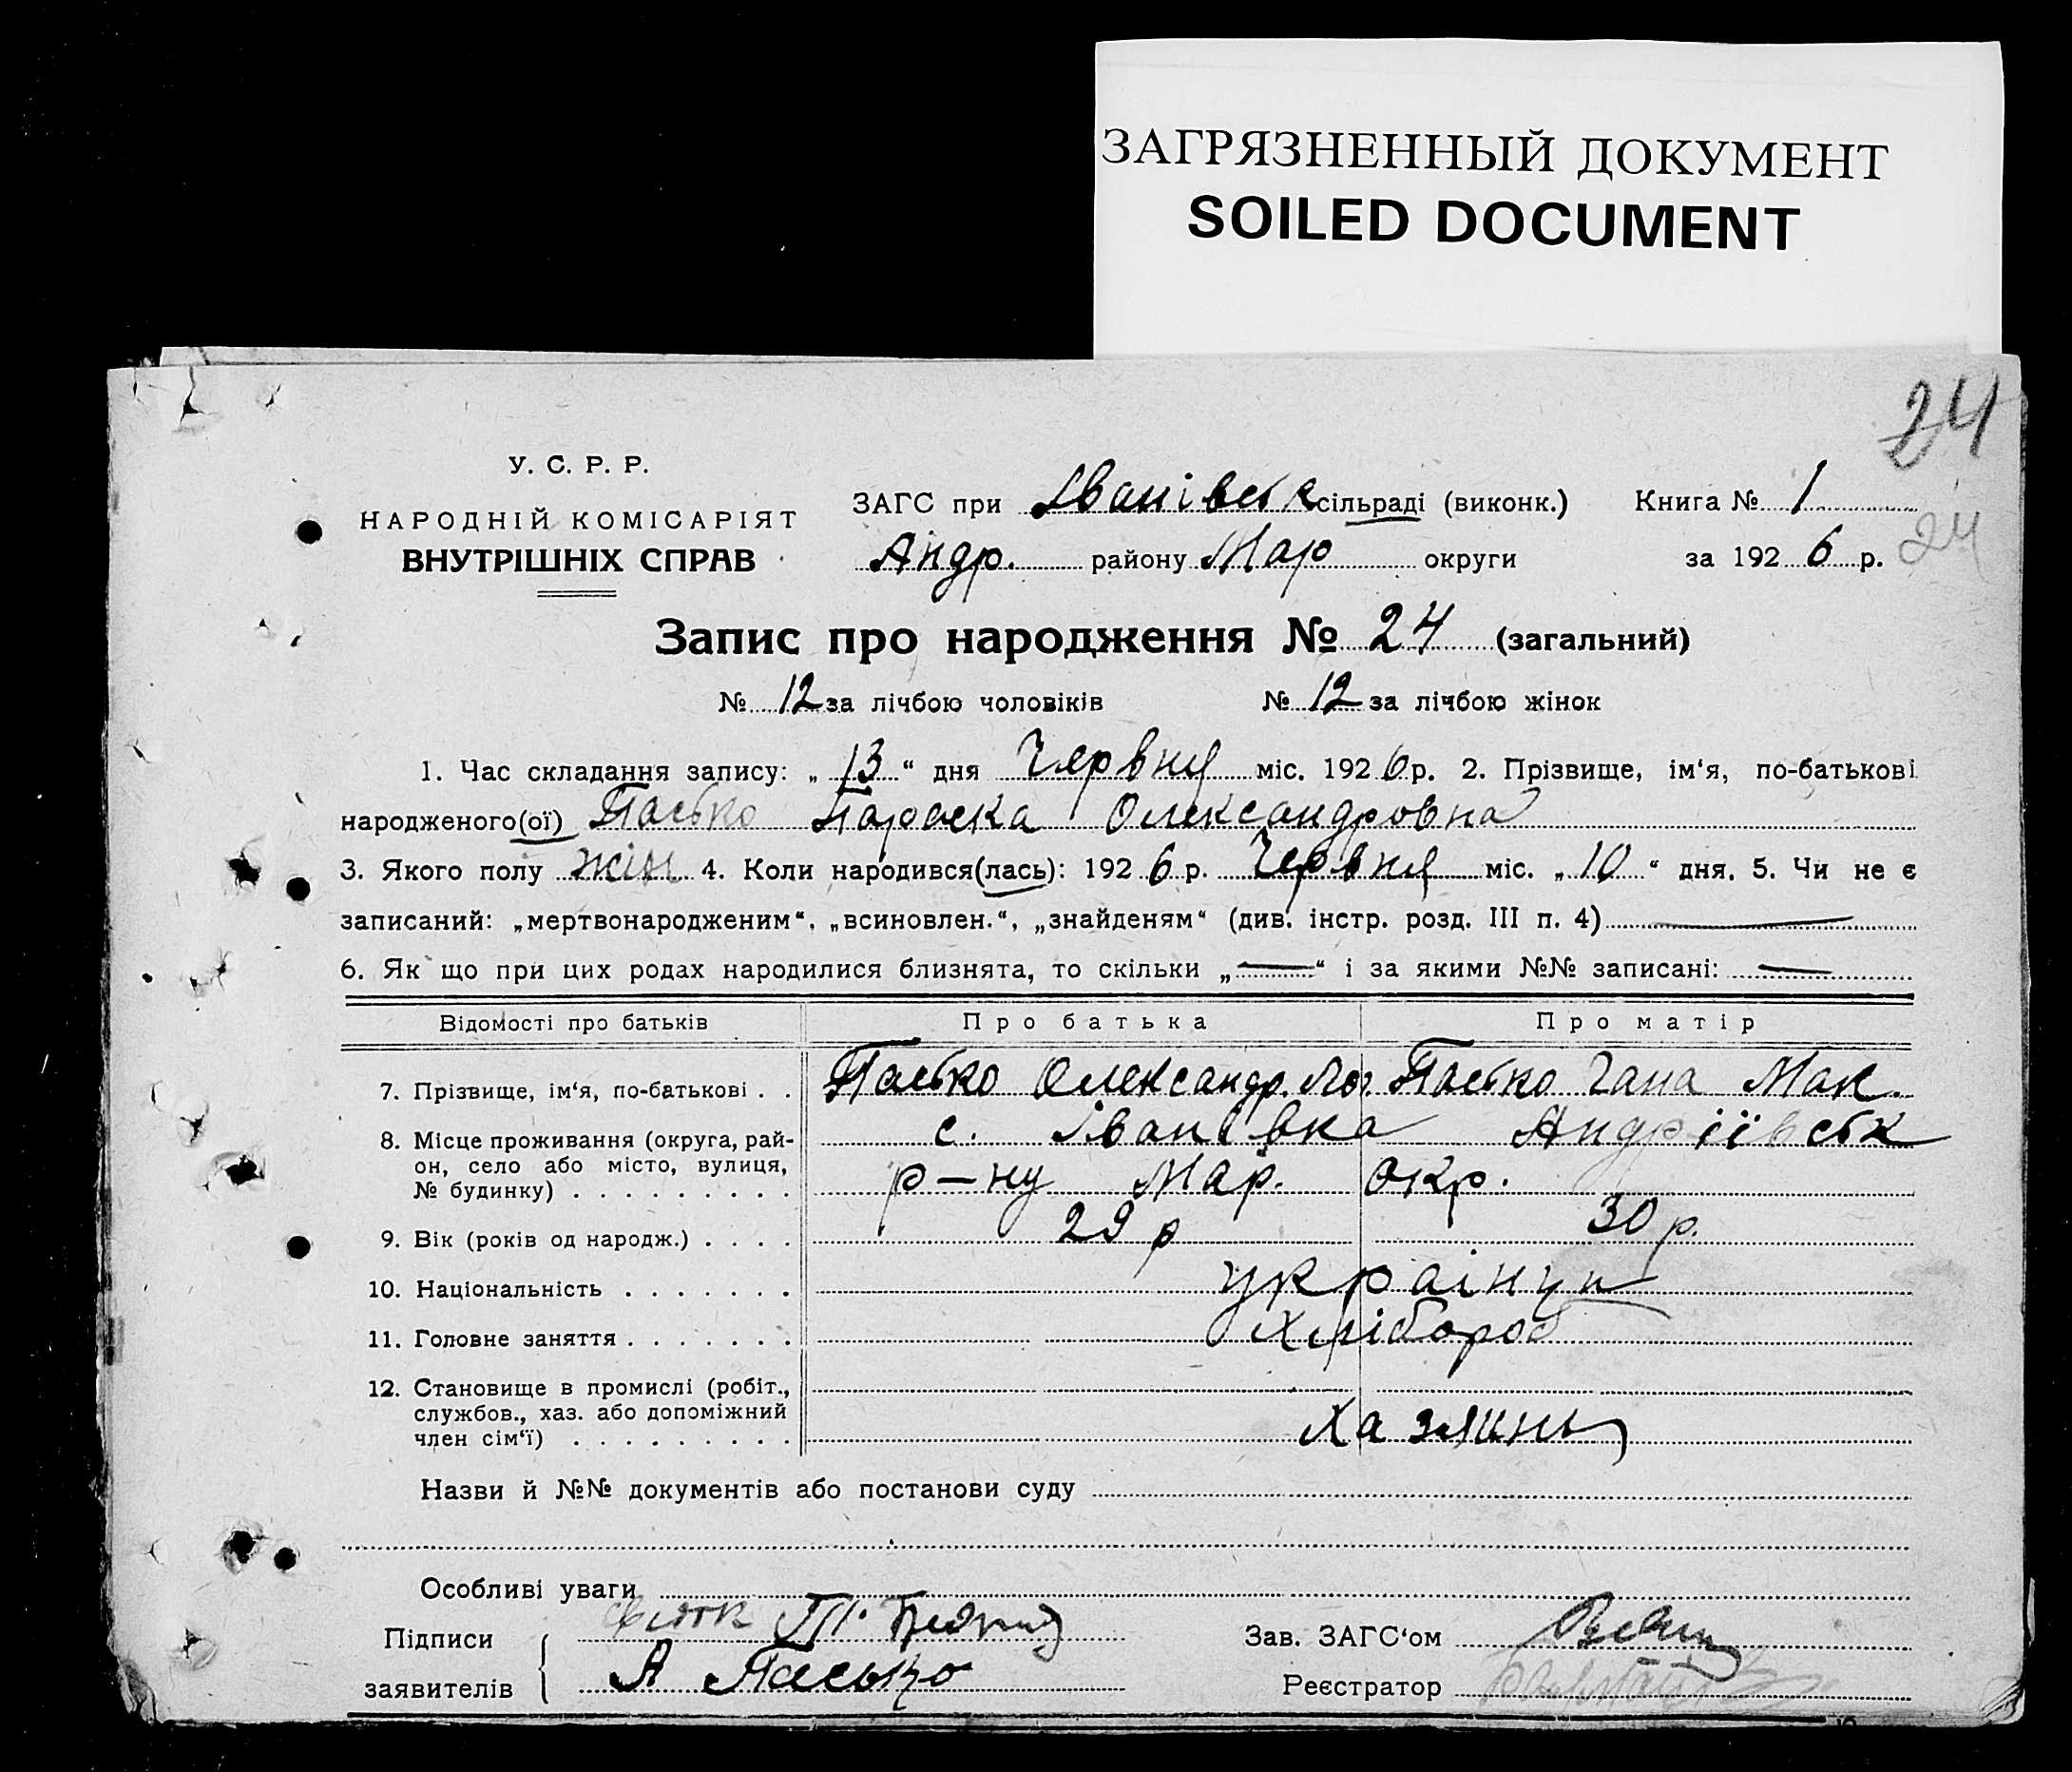 ЗАГРЯЗНЕННЫЙ ДОКУМЕНТ
SOILED DOCUMENT
24
У. С. Р. Р.
НАРОДНІЙ КОМІСАРІЯТ
ВНУТРІШНІХ СПРАВ
ЗАГС при Іванівськ сільраді (виконк.) Книга № 1
Андр. району Мар округи за 192 6 р. 24
Запис про народження № 24 (загальний)
№ 12 за лічбою чоловіків № 12 за лічбою жінок
1. Час складання запису: „ 13 “ дня Червня міс. 192 6 р. 2. Прізвище, ім‘я, по-батькові
народженого(ої) Пасько Параска Олександровна
3. Якого полу жін 4. Коли народився(лась): 192 6 р. Червня міс. „ 10 “ дня. 5. Чи не є
записаний: „мертвонародженим“, „всиновлен.“, „знайденям“ (див. інстр. розд. III п. 4) —
6. Як що при цих родах народилися близнята, то скільки „ — “ і за якими №№ записані: —
Відомості про батьків Про батька Про матір
7. Прізвище, ім‘я, по-батькові . . Пасько Олександр. Пасько Гана Мак.
8. Місце проживання (округа, рай-
он, село або місто, вулиця,
№ будинку) . . . . . . . . .
с. Іванівка Андріївськ
р-ну Мар. окр.
9. Вік (років од народж.) . . . . 29 р 30 р.
10. Національність . . . . . . . українци
11. Головне заняття . . . . . . . Хлібороб
12. Становище в промислі (робіт.,
службов., хаз. або допоміжний
член сім‘ї) . . . . . . . . .
Хазяинь
Назви й №№ документів або постанови суду
Особливі уваги
Підписи
заявителів
А Пасько
Зав. ЗАГС‘ом
Реєстратор